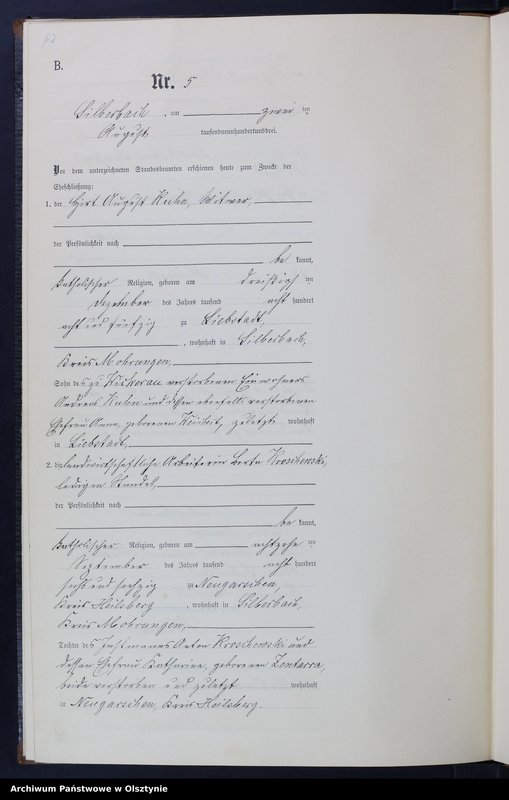 B.
Nr. 5
Silberbach, am zwei ten
August tausendneunhundertunddrei.
Vor dem unterzeichneten Standesbeamten erschienen heute zum Zwecke der
Eheschließung:
1. der Hirt August Kuhn, Witwer,
der Persönlichkeit nach
be kannt,
katholischer Religion, geboren am dreißigsten
Dezember des Jahres tausend acht hundert
acht und fünfzig zu Liebstadt,
, wohnhaft in Silberbach,
Kreis Mohrungen,
Sohn des zu verstorbenen Einwohners
Andreas Kuhn und dessen ebenfalls verstorbenen
Ehefrau Anna, geborenen Weichert, zuletzt wohnhaft
in Liebstadt,
2. die landwirtschaftliche Arbeiterin Berta Kroschewski,
ledigen Standes,
der Persönlichkeit nach
be kannt,
katholischer Religion, geboren am achtzehn ten
September des Jahres tausend acht hundert
sechs und sechzig zu Neugarschen,
Kreis Heilsberg, wohnhaft in Silberbach,
Kreis Mohrungen,
Tochter des Instmannes Anton Kroschewski und
dessen Ehefrau Katharina, geborenen Zentarra,
beide verstorben und zuletzt wohnhaft
in Neugarschen, Kreis Heilsberg.
Archiwum Państwowe w Olsztynie